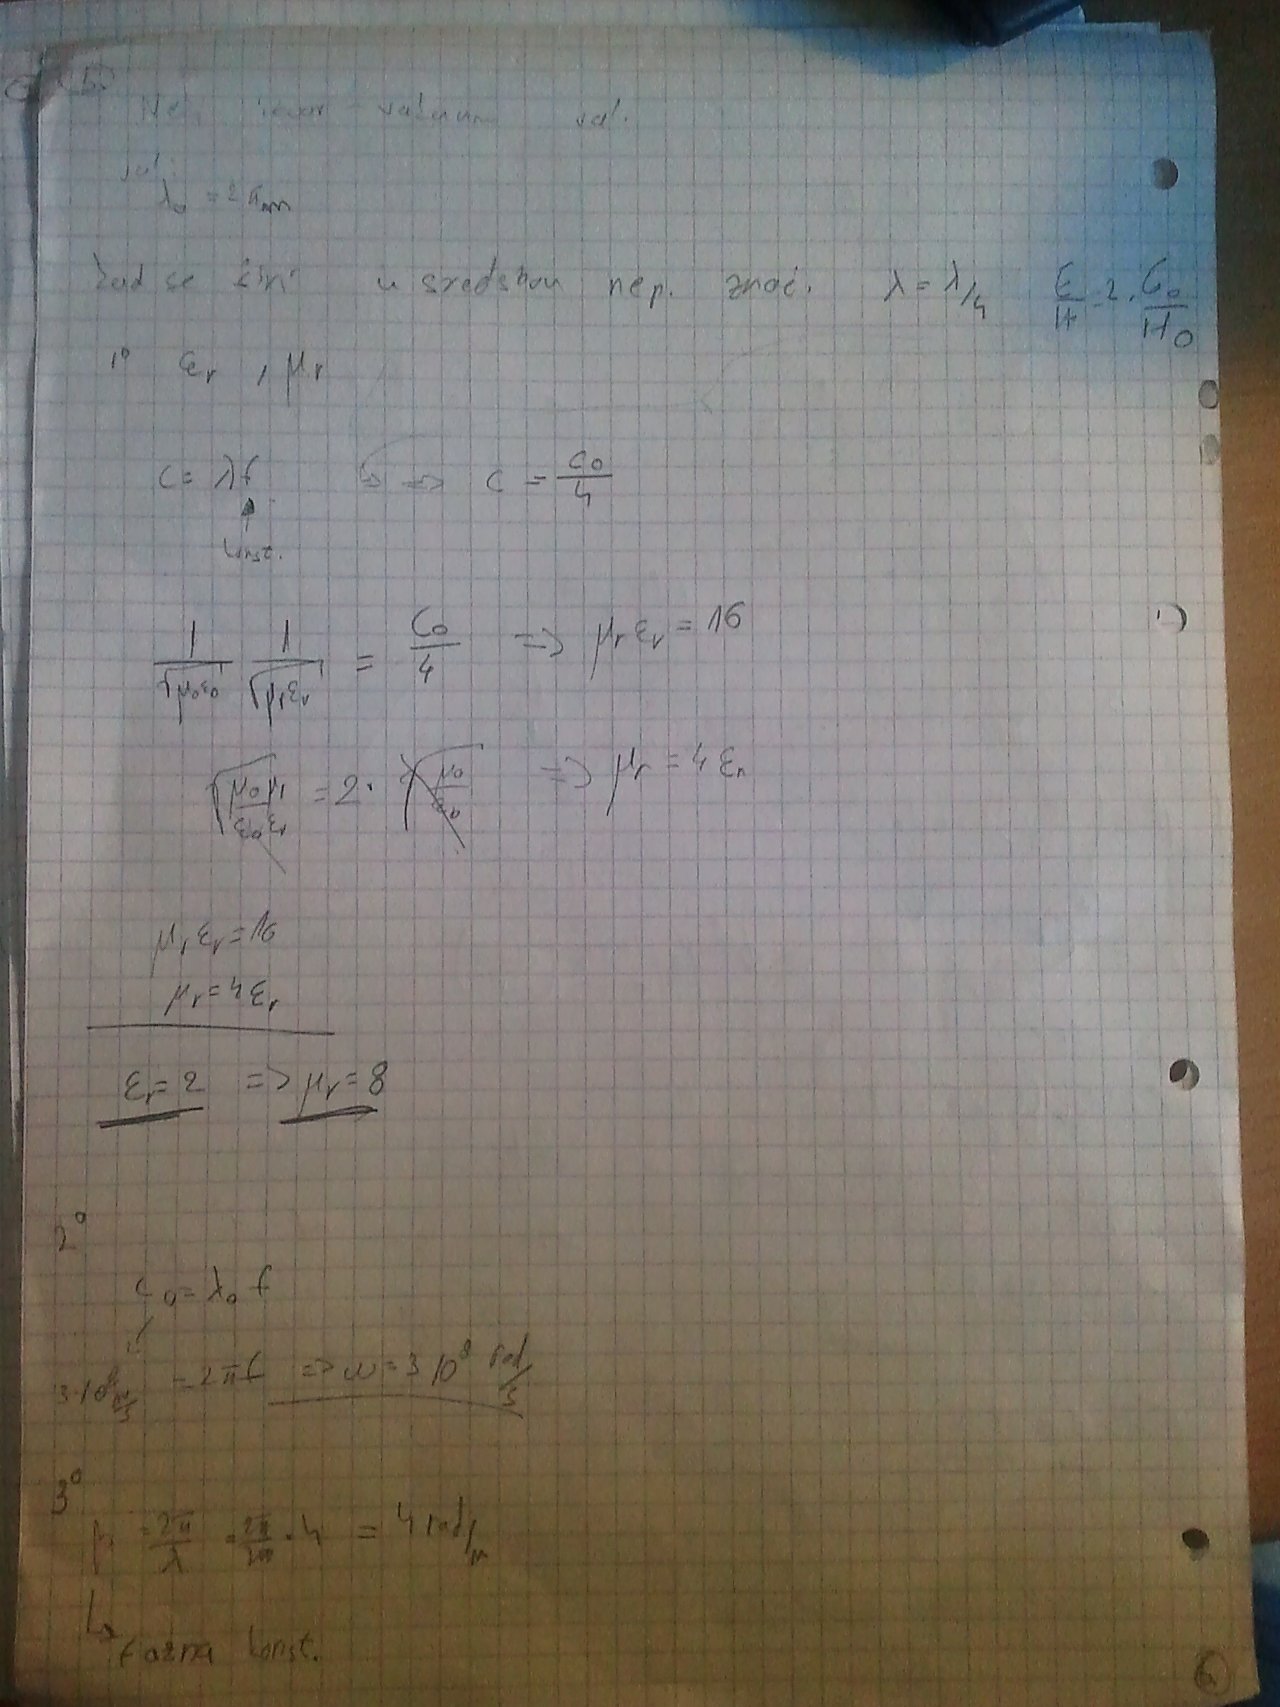 5.
izvor vakuum val.
λ₀ = 2πm
kad se širi u sredstvu nep. znač. λ = λ/4 E/H = 2 · E₀/H₀
1° εr , μr
c = λf => c = c₀/4
konst.
1/√μ₀ε₀ 1/√μrεr = c₀/4 => μrεr = 16
1)
√μ₀μr/ε₀εr = 2 · √μ₀/ε₀ => μr = 4εr
μrεr = 16
μr = 4εr
εr = 2 => μr = 8
2°
c₀ = λ₀ f
3·10⁸ m/s = 2πf => ω = 3 10⁸ rad/s
3°
= 2π/λ = 2π/2π · 4 = 4 rad/m
fazna konst.
6